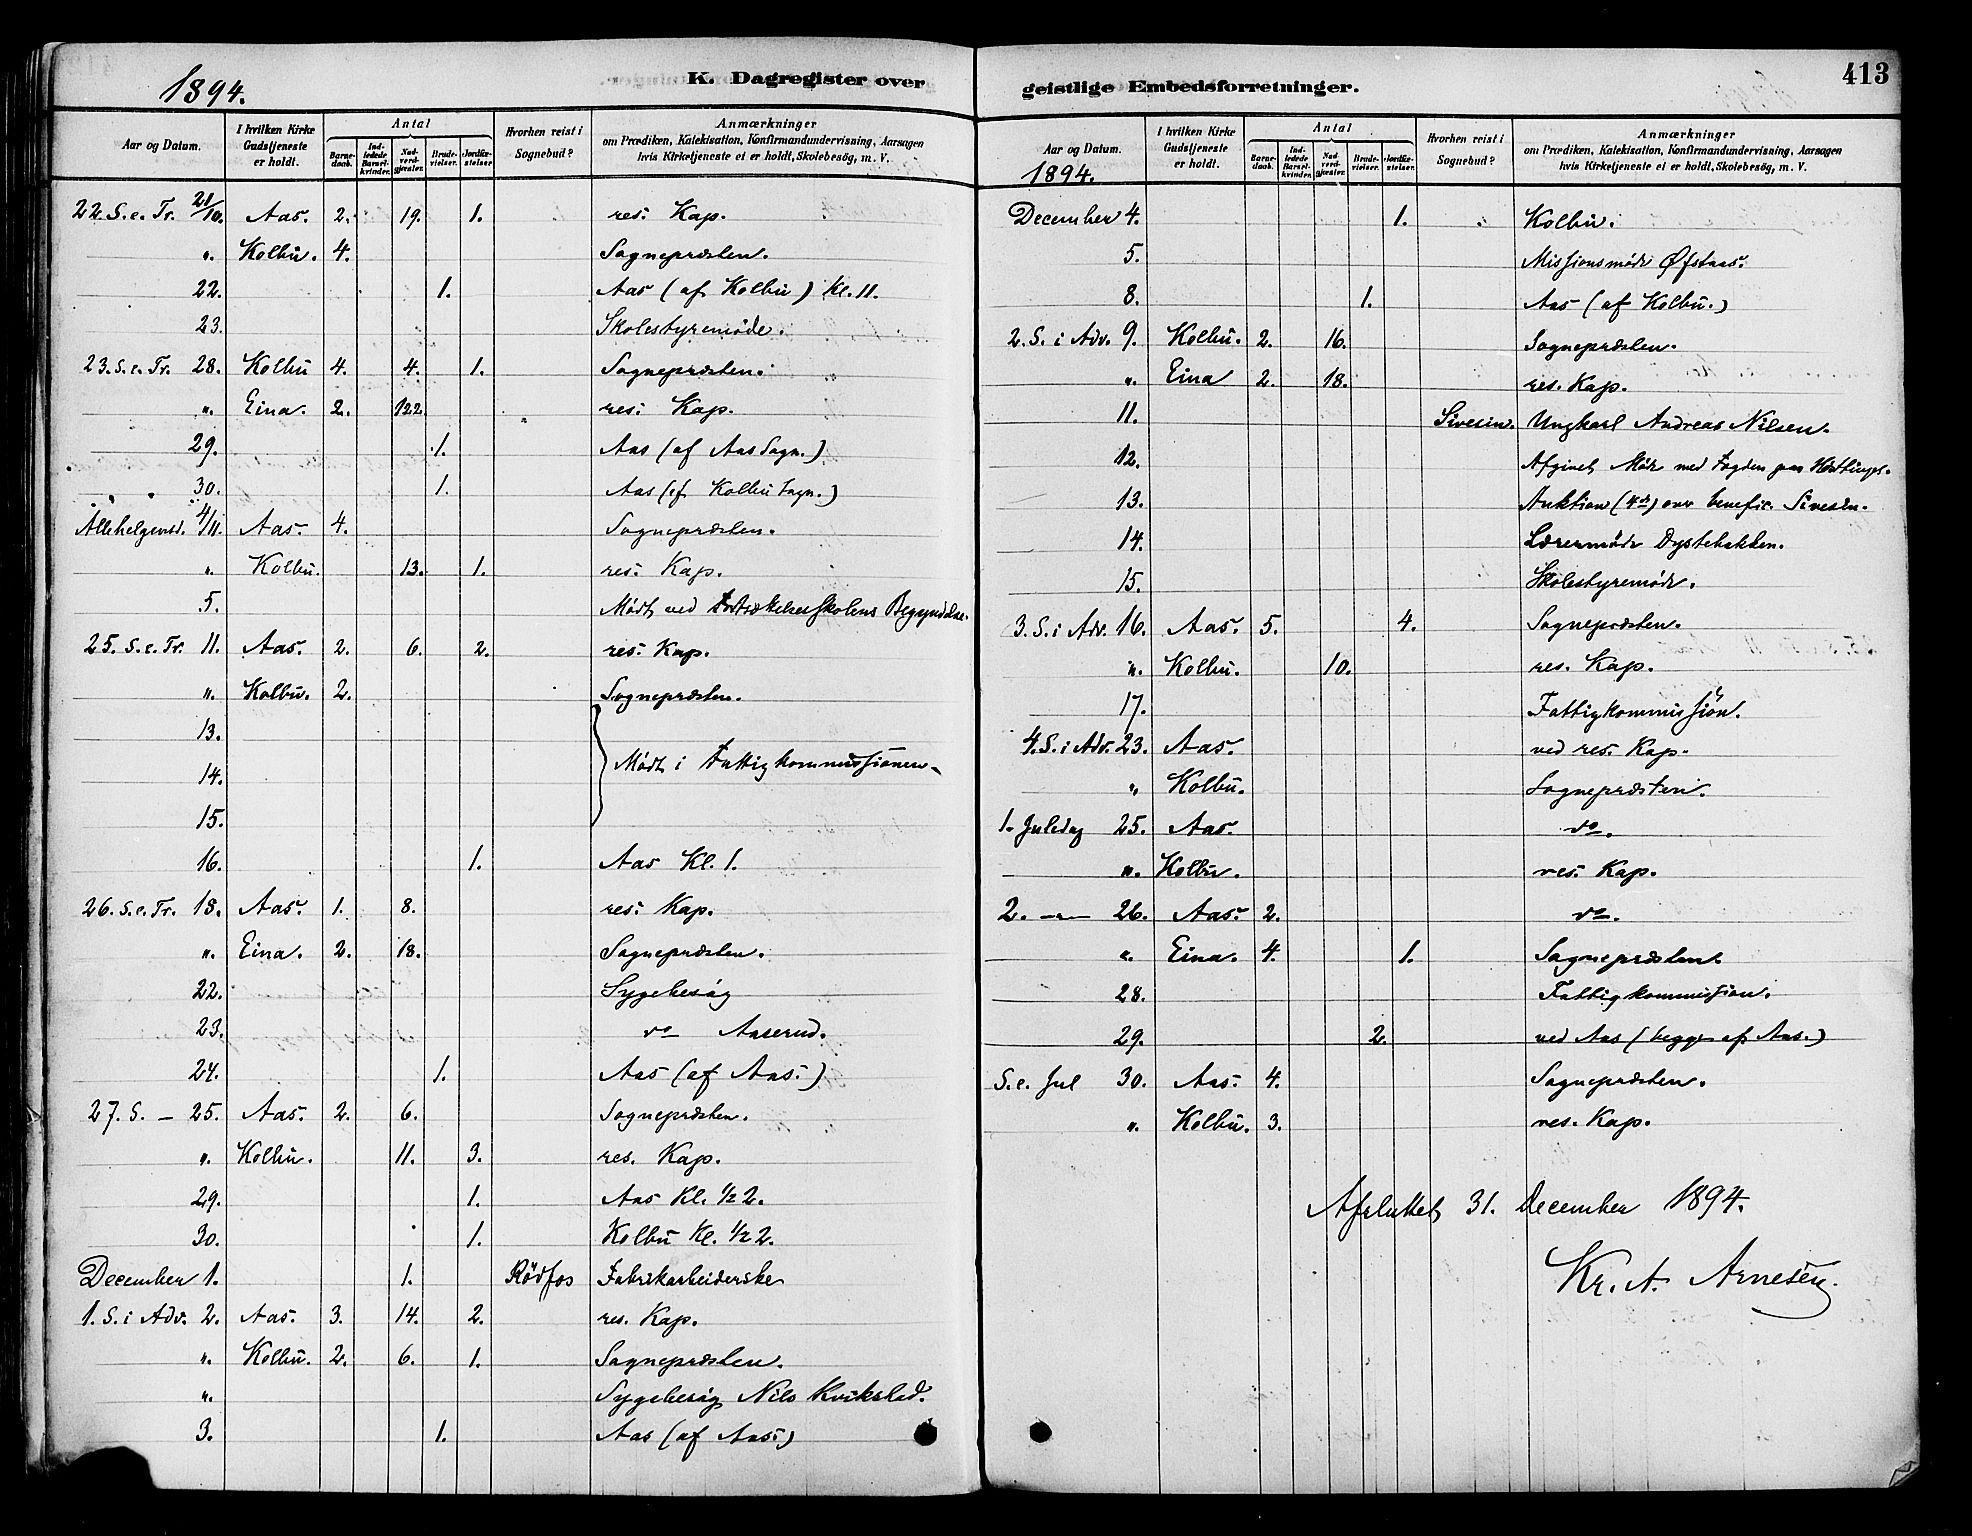 1894.
K. Dagregister over
Aar og Datum. I hvilken Kirke Gudstjeneste er holdt. Antal Barnedaab. Indledede Barselkvinder. Nadverdgjester. Brudevielser. Jordfæstelser Hvorhen reist i Sognebud? Anmærkninger om Prædiken, Katekisation, Konfirmandundervisning, Aarsagen hvis Kirketjeneste ei er holdt, Skolebesøg, m. V.
22. S. e. Tr. 21/10. Aas. 2. 19. 1. res. Kap.
" Kolbu. 4. Sognepræsten.
22. 1. Aas (af Kolbu) Kl. 11.
23. Skolestyremöde.
23. S. e. Tr. 28. Kolbu 4. 4. 1. Sognepræsten.
" Eina. 2. 122 res. Kap.
29. 1. Aas (af Aas Sogn.)
30. 1. Aas (af Kolbu Sogn.)
Allehelgensd. 4/11. Aas. 4. Sognepræsten.
" Kolbu. 13. 1. res. Kap.
5. Mödt ved Begyndelse.
25. S. e. Tr. 11. Aas. 2. 6. 2. res. Kap.
" Kolbu. 2. Sognepræsten.
13.
Mödt i Fattigkommissionen
14.
15.
16. 1. Aas Kl. 1.
26. S. e. Tr. 18. Aas. 1. 8. res. Kap.
" Eina. 2. 18. Sognepræsten.
22. Sygebesög
23. do Aaserud.
24. 1. Aas (af Aas.)
27. S. — 25. Aas. 2. 6. Sognepræsten.
" Kolbu. 11. 3. res. Kap.
29. 1. Aas Kl. 1/2 2.
30. 1. Kolbu Kl. 1/2 2.
December 1. 1. Rödfos Fabrikarbeiderske
1. S. i Adv. 2. Aas. 3. 14. 2. res. Kap.
" Kolbu. 2. 6. 1. Sognepræsten.
" Sygebesög Nils Kvikstad.
3. 1. Aas (af Aas.)
413
geistlige Embedsforretninger.
Aar og Datum. I hvilken Kirke Gudstjeneste er holdt. Antal Barnedaab. Indledede Barselkvinder. Nadverdgjester. Brudevielser. Jordfæstelser Hvorhen reist i Sognebud? Anmærkninger om Prædiken, Katekisation, Konfirmandundervisning, Aarsagen hvis Kirketjeneste ei er holdt, Skolebesøg, m. V.
1894.
December 4. 1. Kolbu.
5. Missionsmöde Øfstaas.
8. 1. Aas (af Kolbu.)
2. S. i Adv. 9. Kolbu. 2. 16. Sognepræsten.
" Eina 2. 18. res. Kap.
11. Sivesin. Ungkarl Andreas Nilsen.
12. Afgivet Möde med Fogden paa
13. Auktion over benefic. Sivesin.
14. Lærermöde Dystebakken.
15. Skolestyremöde.
3. S. i Adv. 16. Aas. 5. 4. Sognepræsten.
" Kolbu. 10. res. Kap.
17. Fattigkommission.
4. S. i Adv. 23. Aas. ved res. Kap.
" Kolbu. Sognepræsten.
1. Juledag 25. Aas. do.
" Kolbu. res. Kap.
2. —"— 26. Aas. 2. do.
" Eina. 4. 1. Sognepræsten.
28. Fattigkommission.
29. 2. ved Aas (begge af Aas.)
S. e. Jul 30. Aas. 4. Sognepræsten.
" Kolbu. 3. res. Kap.
Afsluttet 31. December 1894.
Kr. A. Arnesen.